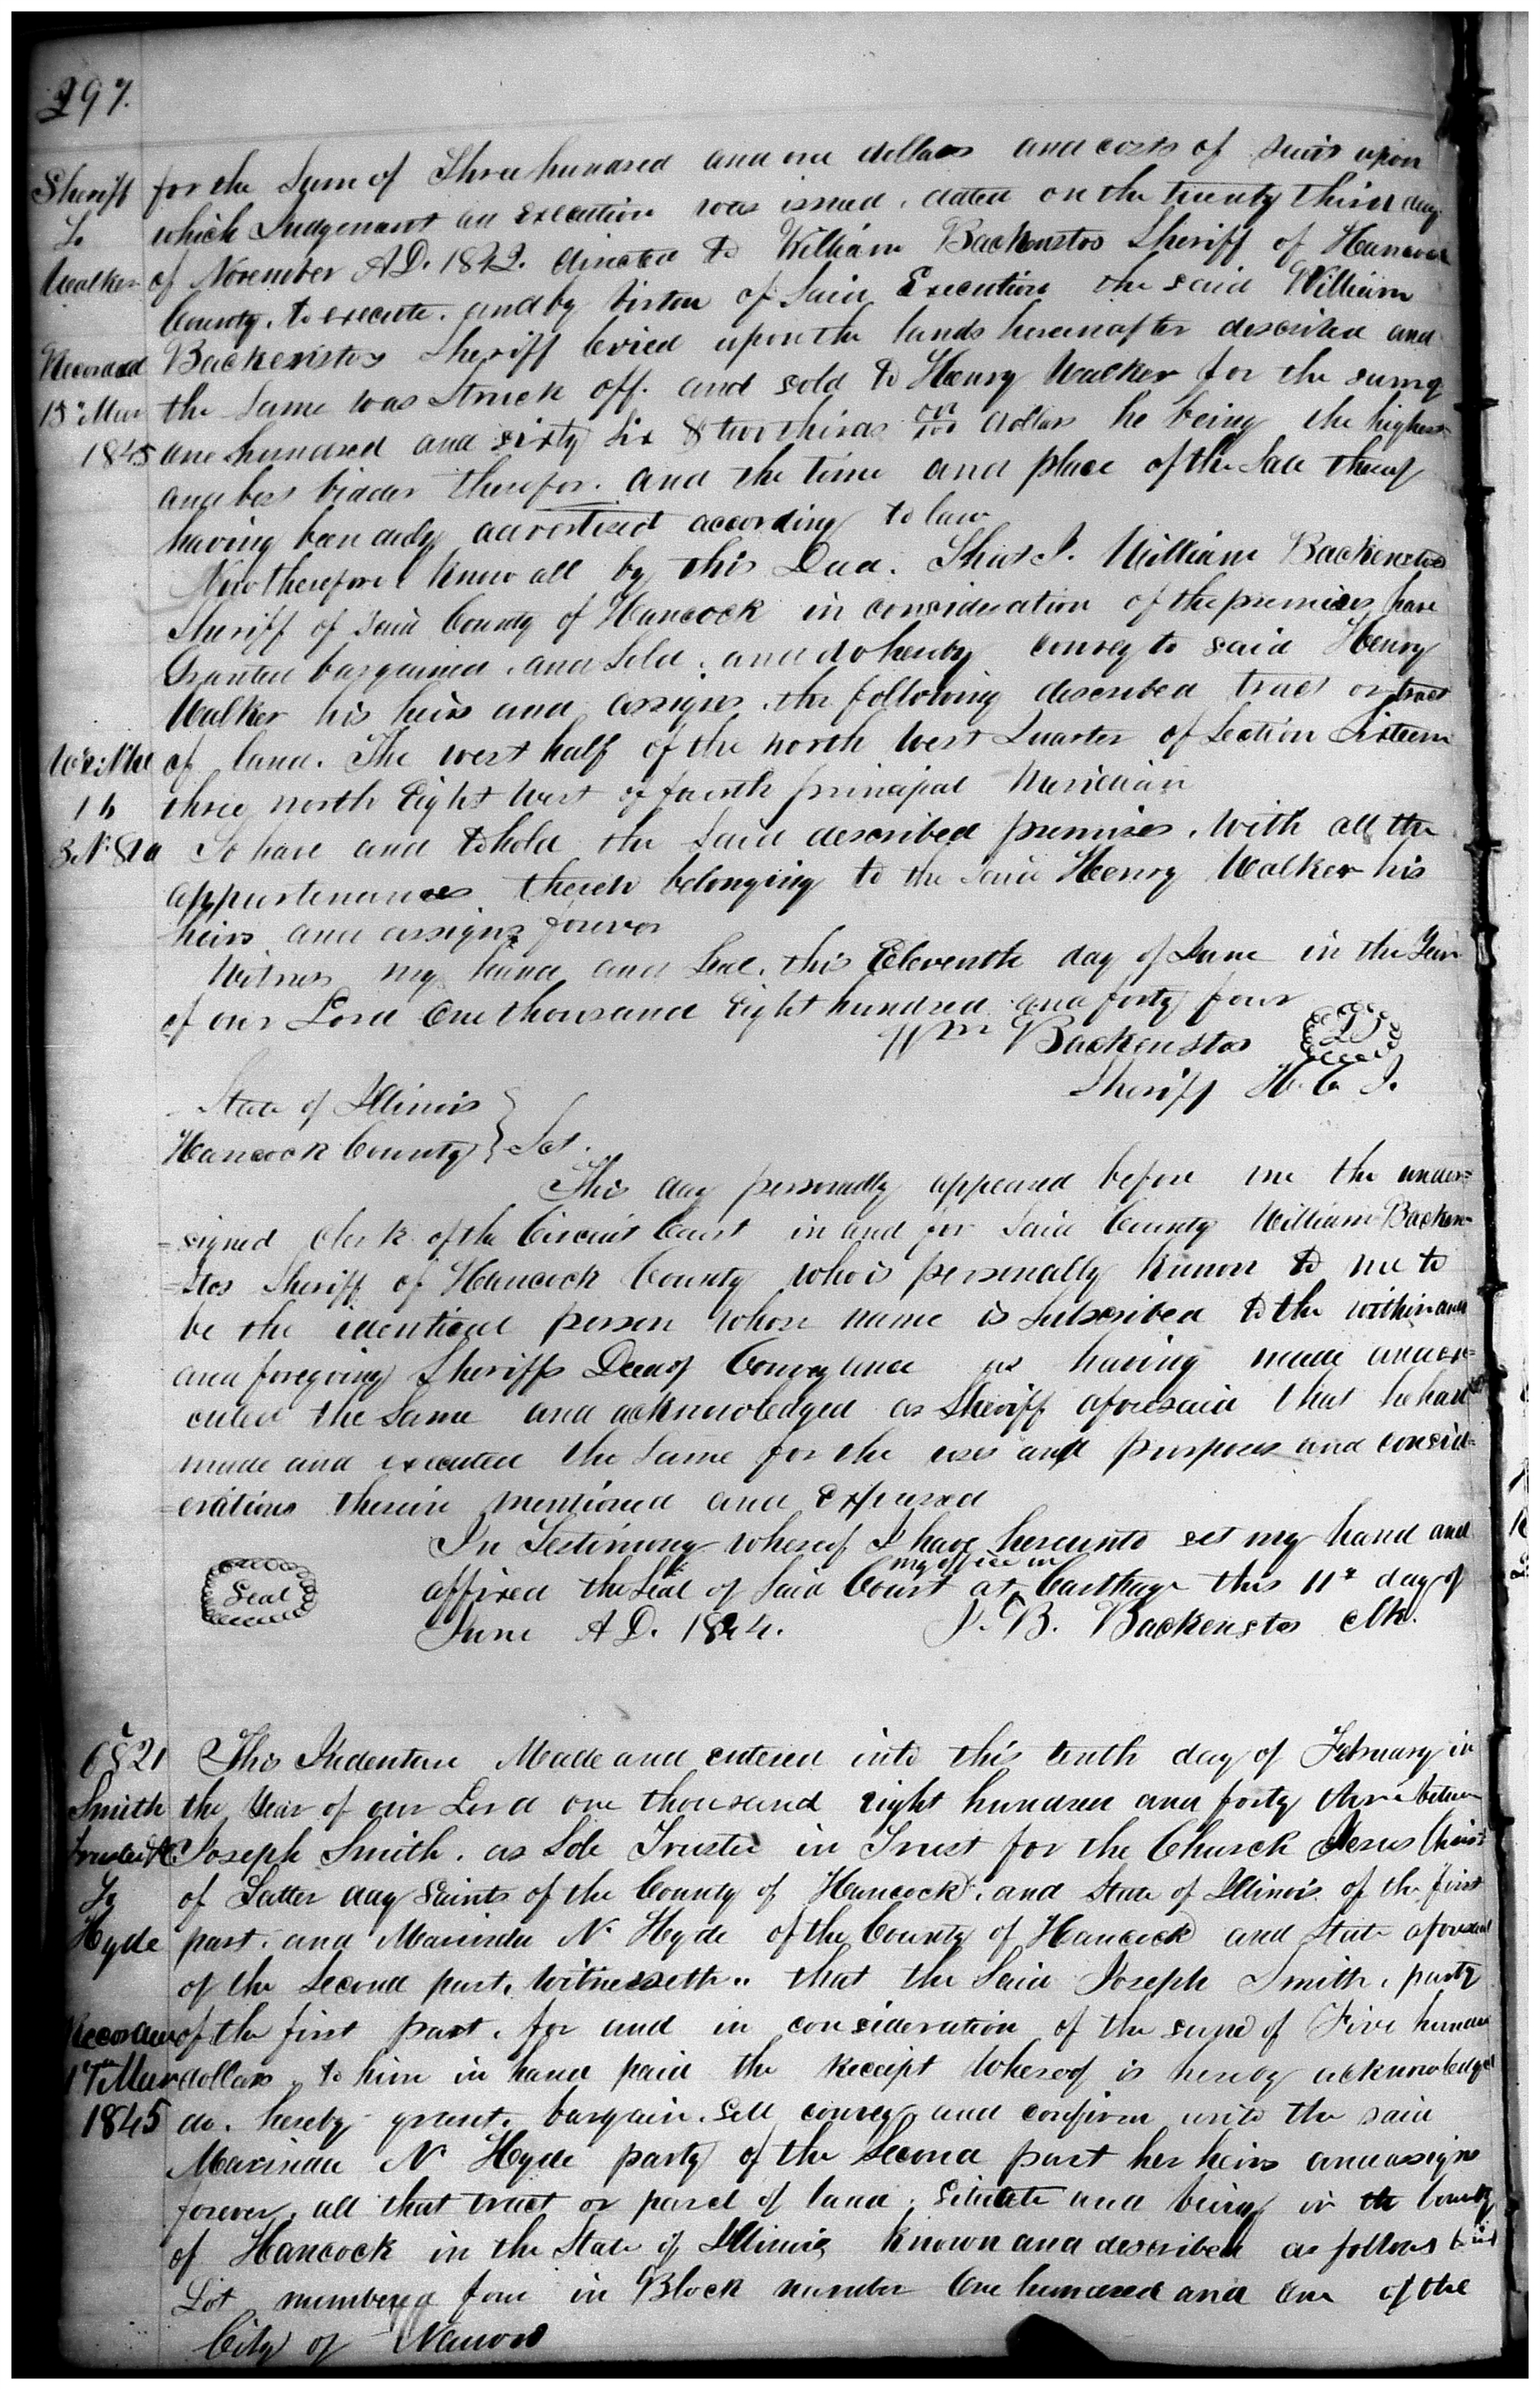 297.
Sheriff
To
Walker
Recorded
15" Mar
1845
for the Sum of Three hundred and one dollars and costs of suit upon
which Judgement an execution was issued. dated on the twenty third day
of November A.D. 1842. directed to William Backenstos Sheriff of Hancock
County. to execute. and by virtue of Said Execution the said William
Backenstos Sheriff levied upon the lands hereinafter described and
the Same was Struck off. and sold to Henry Walker for the sum of
one hundred and sixty six & two thirds dollars he being the highest
and best bidder therefor. and the time and place of the Sale thereof
having been duly advertised according to law
Now therefore know all by this Deed. That I. William Backenstos
Sheriff of Said County of Hancock in consideration of the premises have
Granted bargained. and Sold. and do hereby convey to said Henry
Walker his heirs and assigns. the following described tract or tract
of land. The west half of the north West Quarter of Section Sixteen
three north Eight West of fourth principal Meridian
16
To have and to hold the Said described premises. With all the
appurtenances thereto belonging to the Said Henry Walker his
heirs and assigns forever
Witness my hand and Seal. this Eleventh day of June in the Year
of our Lord One thousand Eight hundred and forty four
Wm Backenstos
Sheriff H. C. I.
State of Illinois
Hancock County } Sct.
This day personally appeared before me the under-
-signed Clerk of the Circuit Court in and for Said County William Backen-
-stos Sheriff of Hancock County who is personally known to me to
be the identical person whose name is Subscribed to the within and
and foregoing Sheriffs Deed of Conveyance as having made and ex-
cuted the Same and acknowledged as Sheriff aforesaid that he had
made and executed the Same for the uses and purposes and consid-
-erations therein mentioned and Expressed
In Testimony whereof I have hereunto set my hand and
my office in
affixed the Seal of Said Court at Carthage this 11th day of
June A.D. 1844. J. B. Backenstos Clk.
Seal
6821
Smith
Trustee &c
To
Hyde
Recorded
17th Mar
1845
This Indenture Made and entered into this tenth day of February in
the Year of our Lord one thousand eight hundred and forty three between
Joseph Smith. as Sole Trustee in Trust for the Church Jesus Christ
of Latter day Saints of the County of Hancock. and State of Illinois. of the first
part. and Marinda N. Hyde of the County of Hancock and State aforesaid
of the Second part. Witnesseth" that the Said Joseph Smith. party
of the first part. for and in consideration of the sum of Five hundred
dollars. to him in hand paid the receipt whereof is hereby acknowledged
do. hereby grant. bargain. Sell convey, and confirm unto the said
Marinda N Hyde party of the Second part her heirs and assigns
forever. all that tract or parcel of land. Situate and being in the County
of Hancock in the State of Illinois known and described as follows to wit
Lot numbered four in Block number One hundred and One of the
City of Nauvoo